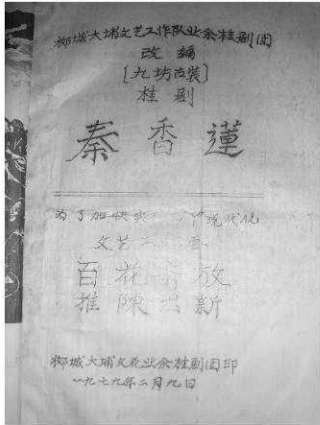 柳城大埔文艺工作队业余桂剧团
改编
[九场古装]
桂剧
秦香莲
为了加快实 现代化
文艺工
百花齐放
推陈出新
柳城大埔文艺业余桂剧团印
一九七九年二月九日